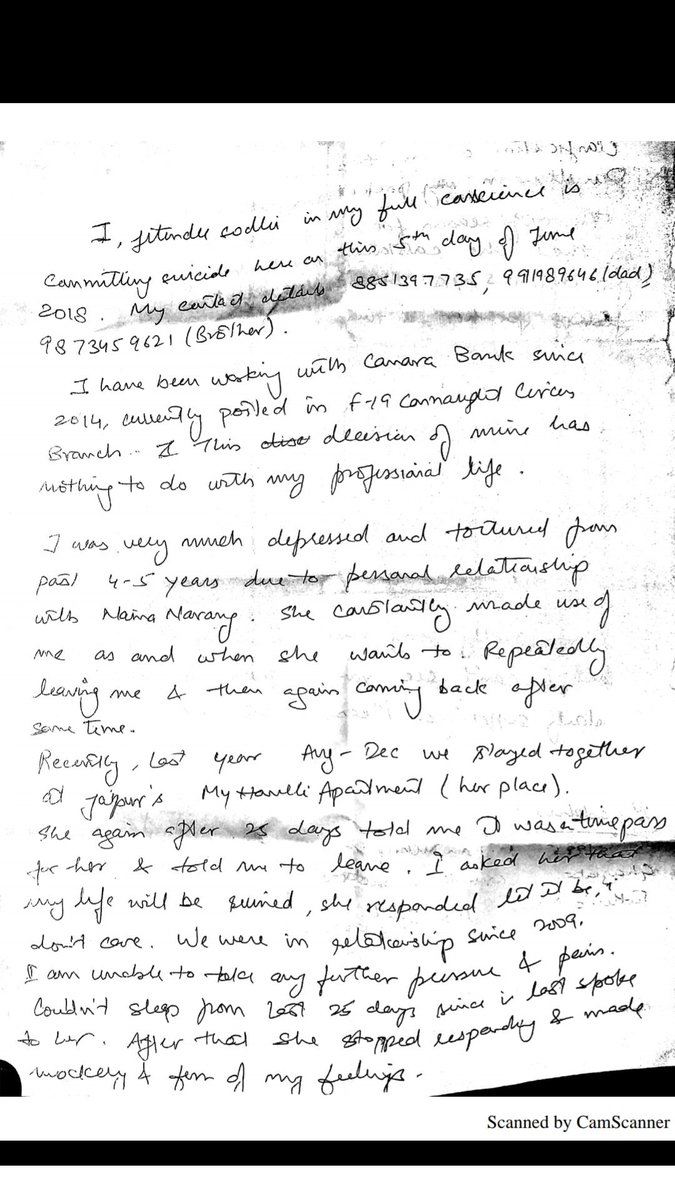 I, Jitender sodhi in my full conscience is
committing suicide here on this 5th day of June
2018. My contact details 8851397735, 991989646 (dad)
9873459621 (Brother).
I have been working with Canara Bank since
2014, currently posted in F-19 Connaught Circus
Branch. This decision of mine has
nothing to do with my professional life.
I was very much depressed and tortured from
past 4-5 years due to personal relationship
with Naina Narang. She constantly made use of
me as and when she wants to. Repeatedly
leaving me & then again coming back after
some time.
Recently, last year Aug-Dec we stayed together
at Jaipur's My Haveli Apartment (her place).
She again after 25 days told me I was a timepass
for her & told me to leave. I asked her that
my life will be ruined, she responded let it be, i
don't care. We were in relationship since 2009.
I am unable to take any further pressure & pain.
Couldn't sleep from last 25 days since i last spoke
to her. After that she stopped responding & made
mockery & fun of my feelings.
Scanned by CamScanner